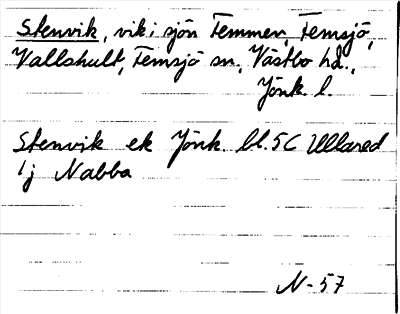 Stenvik, vik i sjön Femmen, Femsjö,
Vallshult, Femsjö sn, Västbo hd.,
Jönk. l.
Stenvik ek Jönk. bl. 5C Ullared
1j Nabba
N-57